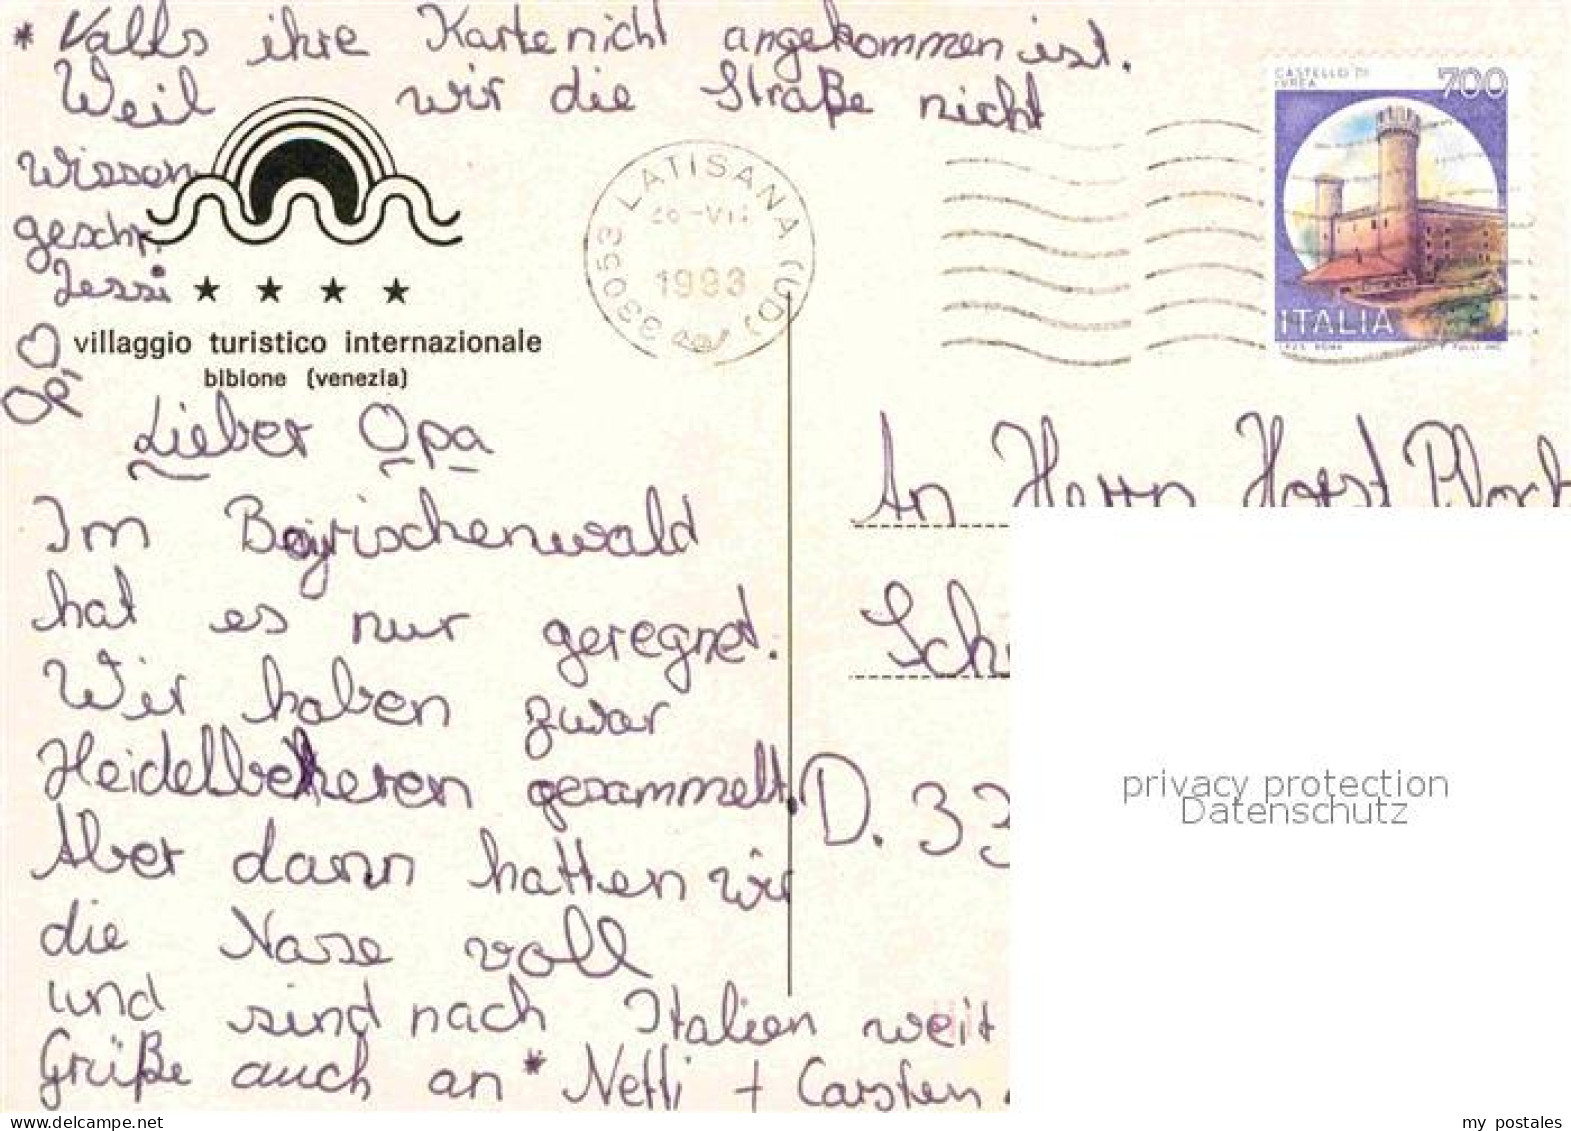 * Valls ihre Karte nicht angekommen ist.
Weil wir die Straße nicht
wissen
geschr.
Jessi
villaggio turistico internazionale
bibione (venezia)
Opi
33053 LATISANA (UD)
1993
CASTELLO DI
IVREA
700
ITALIA
Lieber Opa
Im Bayrischenwald
hat es nur geregnet.
Wir haben zwar
Heidelbeheren gesammelt.
Aber dann hatten wir
die Nase voll
und sind nach Italien weit
Grüße auch an * Netti + Carsten
An Herrn Horst
Sch
D. 33
privacy protection
Datenschutz
my postales
www.delcampe.net